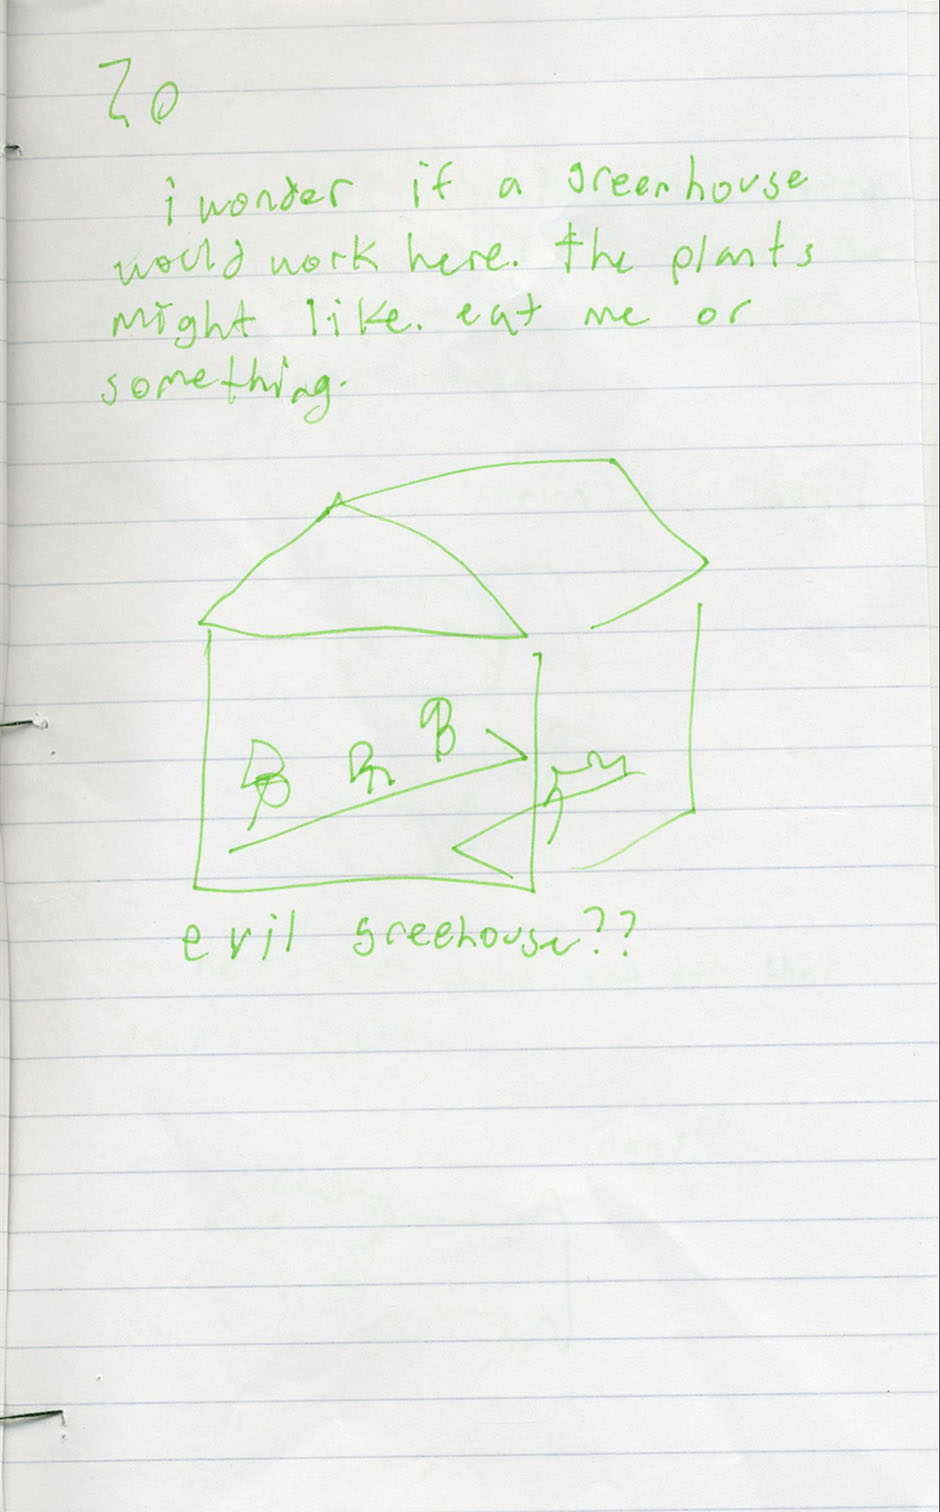 20
i wonder if a greenhouse
would work here. the plants
might like. eat me or
something.
evil greehouse??